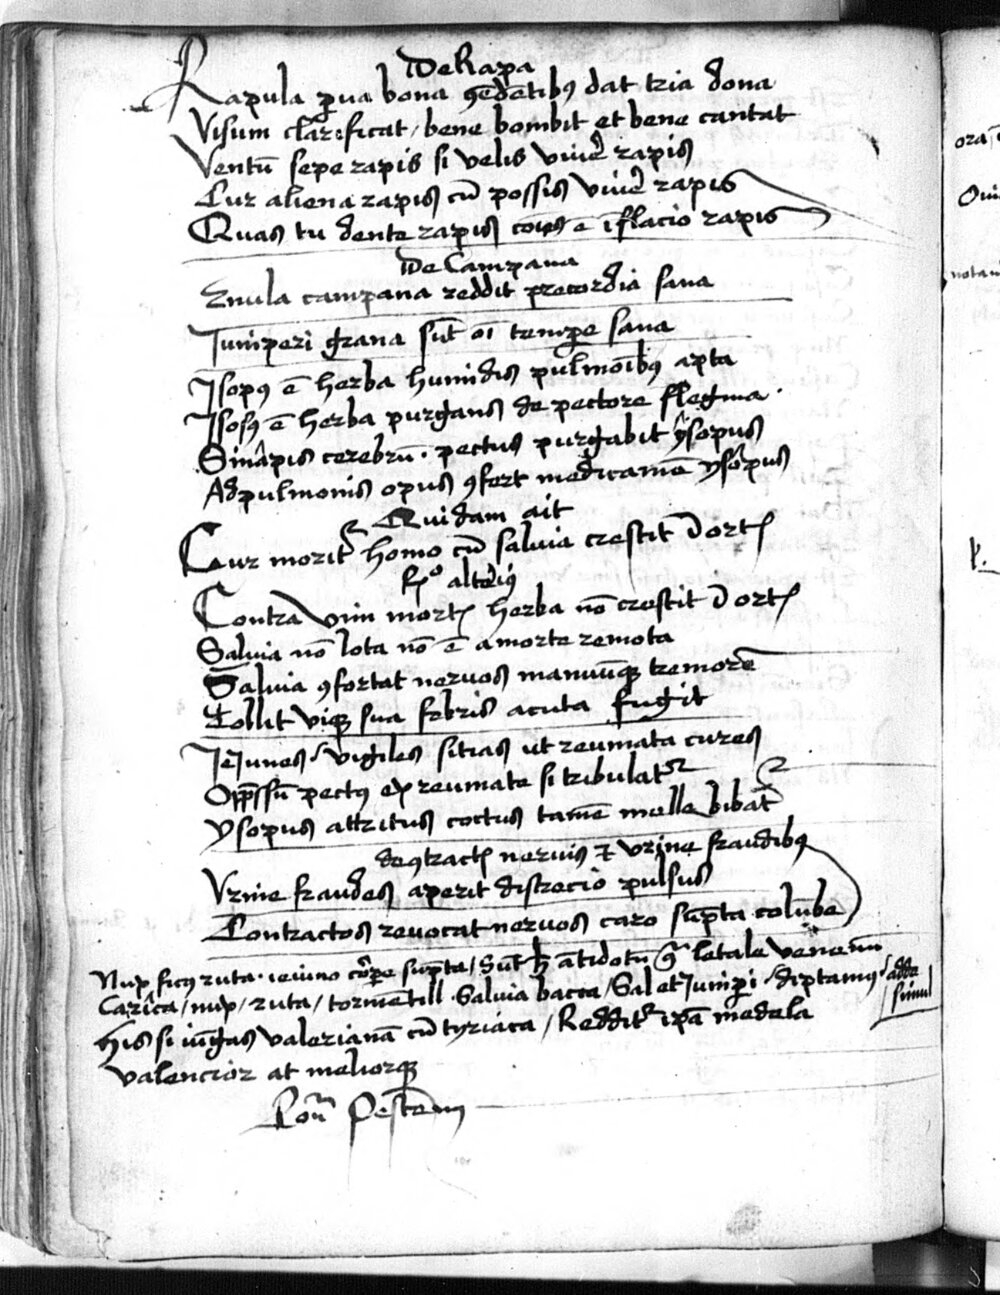 De Rapa
Rapula p̱ua bona ꝯedētibꝫ dat tria dona
Visum clarificat / bene bombit et bene cantat
Ventū sepe rapis si velis viue᷑ rapis
Cur aliena rapis cū possis viue᷑ rapis
Quas tu dente rapis ē īflacio rapis
De Campana
Enula campana reddit precordia sana
Juniperi grana sūt oī tempe̱ sana
Isopꝰ ē herba humidis pulmonibꝫ apta
Isopꝰ ē herba purgans de pectore flegma
Sinapis cerebrū · pectus purgabit ysopus
Ad pulmonis opus ꝯfert medicamē ysopus
Quidam ait
Cur morit᷑ homo cū salvia crescit ī ortꝭ
R̄º alteriꝰ
Contra vim mortꝭ herba nō crescit ī ortꝭ
Salvia nō lota nō ē a morte remota
Salvia ꝯfortat nervos manuūqꝫ tremorē
Tollit sua febris acuta fugit
Jeiunes / vigiles sitias ut reumata cures
Opp̄ssū pectꝰ ex reumate si tribulat᷑
Ysopus attritus coctus tamē melle bibat᷑
de ꝯtractꝭ nervis et vrine fraudibꝫ
Vrine fraudes aperit discrecio pulsus
Contractos revocat nervos caro sūpta colūbe
Nux ficꝰ ruta · ieiuno cor̄pe sūpta / Sūt antidotū letale venenū
Carica / nux / ruta / tormentill · Salvia bacca / Sal et Junip̱i / diptamꝰ / adde
simul
His si iūgas valerianā cū tyriaca / Reddit᷑ ip̄a medela
valencior at meliorqꝫ
Pestem